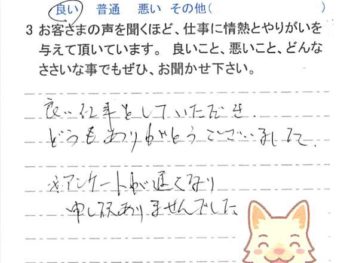 良い 普通 悪い その他( )
3 お客さまの声を聞くほど、仕事に情熱とやりがいを
与えて頂いています。 良いこと、悪いこと、どんな
ささいな事でもぜひ、お聞かせ下さい。
良い仕事をしていただき
どうもありがとうございました。
※アンケートが遅くなり
申し訳ありませんでした